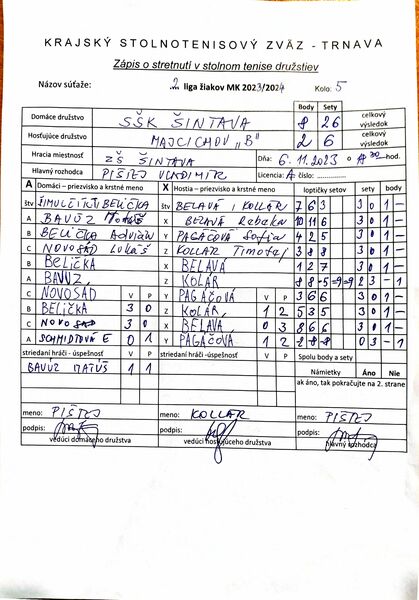 KRAJSKÝ STOLNOTENISOVÝ ZVÄZ - TRNAVA
Zápis o stretnutí v stolnom tenise družstiev
Názov súťaže: 2 liga žiakov MK 2023/2024 Kolo: 5
Body Sety
Domáce družstvo ŠŠK ŠINTAVA 8 26 celkový výsledok
Hosťujúce družstvo MAJCICHOV "B" 2 6 celkový výsledok
Hracia miestnosť ZŠ ŠINTAVA Dňa: 6. 11. 2023 o hod.
Hlavný rozhodca PIŠTEJ VLADIMÍR Licencia: A číslo:
A Domáci – priezvisko a krstné meno X Hostia – priezvisko a krstné meno loptičky setov sety body
štv ŠIMULETTY BELIČKA štv BELAVÁ, KOLLÁR 7 6 3 3 0 1 –
A BAVÚZ Matúš X BELAVÁ Rebeka 10 11 6 3 0 1 –
B BELIČKA Adrián Y PAGÁČOVÁ Sofia 4 2 5 3 0 1 –
C NOVOSÁD Lukáš Z KOLLÁR Timotej 3 8 8 3 0 1 –
B BELIČKA X BELAVÁ 1 2 7 3 0 1 –
A BAVÚZ Z KOLÁR 8 8 -5 -9 -9 2 3 – 1
C NOVOSÁD V P Y PAGÁČOVÁ V P 3 6 6 3 0 1 –
B BELIČKA 3 0 Z KOLÁR 1 2 5 3 5 3 0 1 –
C NOVOSAD 3 0 X BELAVA 0 3 8 6 6 3 0 1 –
A SCHMIDTOVÁ E 0 1 Y PAGÁČOVA 1 2 -8 -8 -8 0 3 – 1
striedaní hráči - úspešnosť V P striedaní hráči - úspešnosť V P Spolu body a sety
BAVUZ MATÚŠ 1 1 Námietky Áno Nie
ak áno, tak pokračujte na 2. strane
meno: PIŠTEJ meno: KOLLAR meno: PIŠTEJ
podpis: podpis: podpis:
vedúci domáceho družstva vedúci hosťujúceho družstva hlavný rozhodca